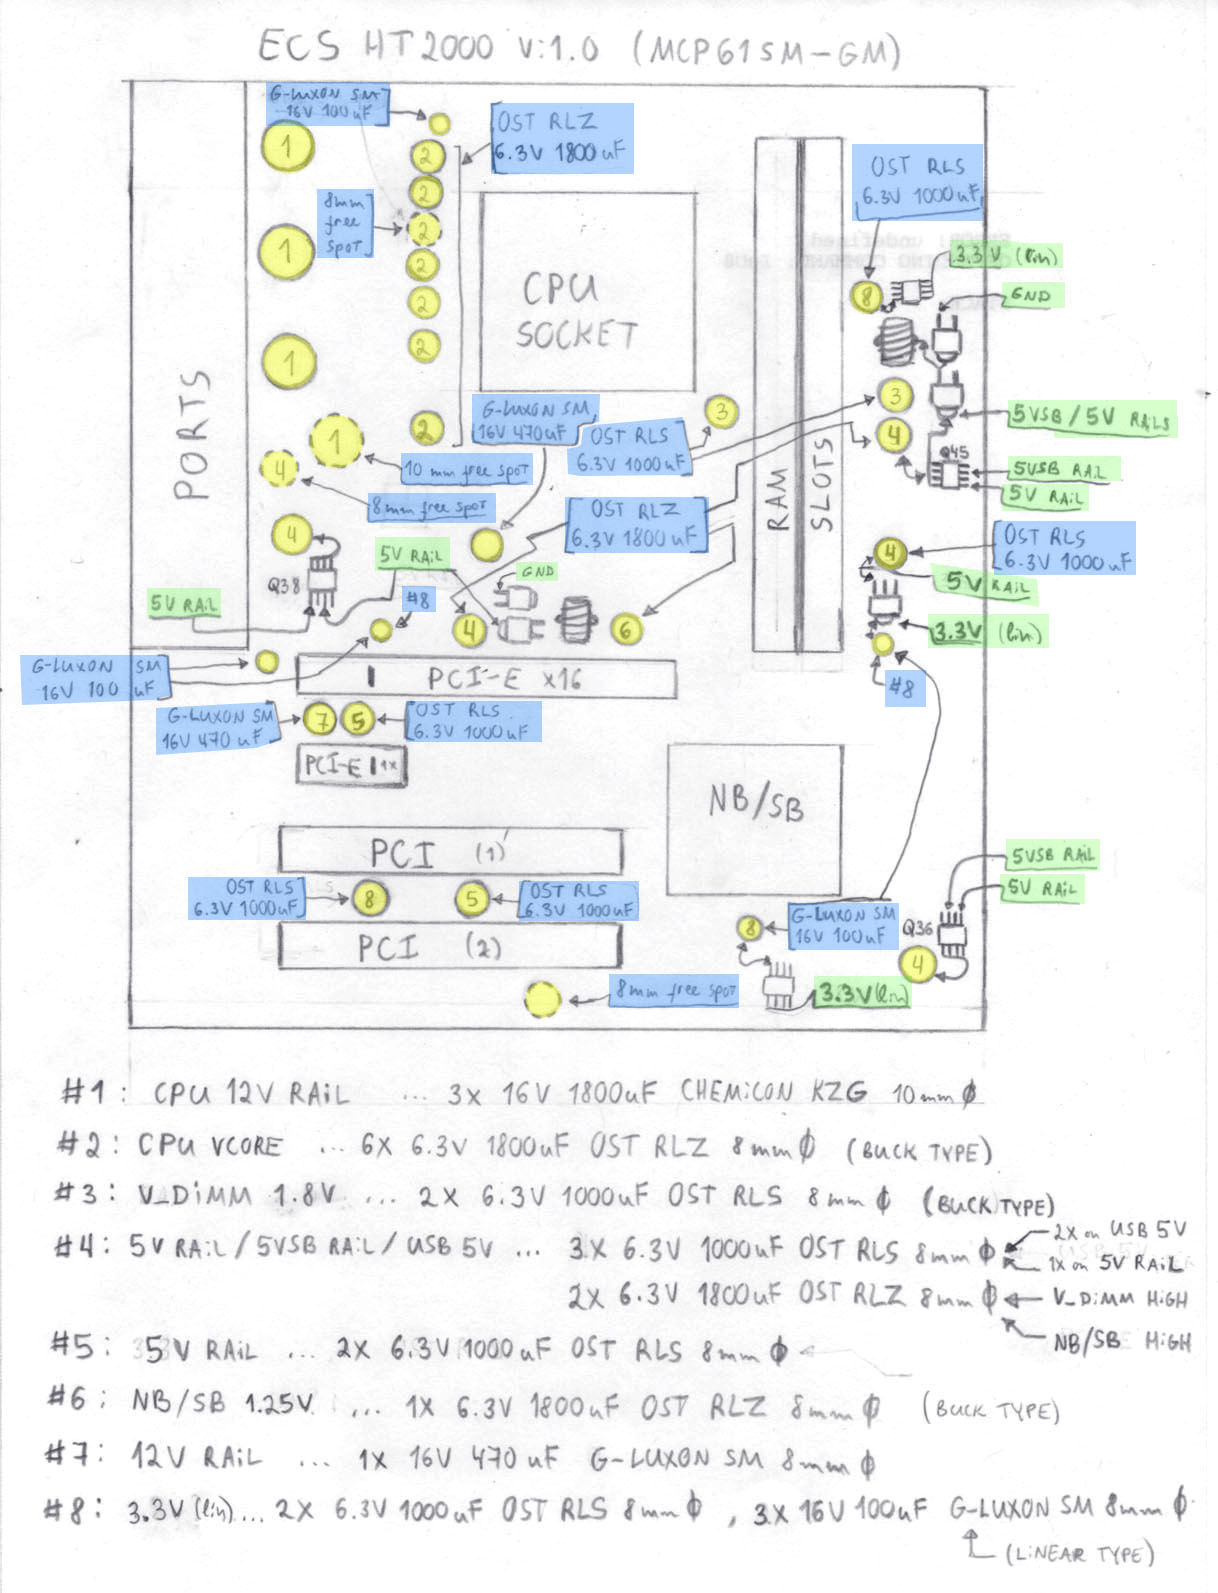 ECS HT2000 V:1.0 (MCP61SM-GM)
G-LUXON SM
16V 100uF
OST RLZ
6.3V 1800uF
OST RLS
6.3V 1000uF
1
2
2
8mm
free
SPOT
2
1
2
2
2
1
2
1
4
CPU
SOCKET
PORTS
RAM
SLOTS
8
3.3V (lin)
GND
3
3
4
5VSB/5V RAiLS
Q45
5VSB RAiL
5V RAiL
G-LUXON SM
16V 470uF
OST RLS
6.3V 1000uF
10 mm free SPOT
8mm free SPOT
4
OST RLZ
6.3V 1800uF
OST RLS
6.3V 1000uF
4
5V RAiL
3.3V (lin)
#8
5V RAiL
GND
Q38
5V RAiL
#8
4
6
G-LUXON SM
16V 100 uF
PCI-E x16
G-LUXON SM
16V 470 uF
7
5
OST RLS
6.3V 1000uF
PCI-E 1x
NB/SB
PCI (1)
OST RLS
6.3V 1000uF
8
5
OST RLS
6.3V 1000uF
PCI (2)
G-LUXON SM
16V 100uF
8
5VSB RAiL
5V RAiL
Q36
4
3.3V(lin)
8mm free SPOT
#1: CPU 12V RAiL ... 3X 16V 1800uF CHEMiCON KZG 10mm ϕ
#2: CPU VCORE ... 6X 6.3V 1800uF OST RLZ 8mm ϕ (BUCK TYPE)
#3: V_DiMM 1.8V ... 2X 6.3V 1000uF OST RLS 8mm ϕ (BUCK TYPE)
#4: 5V RAiL/5VSB RAiL/USB 5V ... 3X 6.3V 1000uF OST RLS 8mm ϕ
2X on USB 5V
1X on 5V RAiL
2X 6.3V 1800uF OST RLZ 8mm ϕ
V_DiMM HiGH
NB/SB HiGH
#5: 5V RAiL ... 2X 6.3V 1000uF OST RLS 8mm ϕ
#6: NB/SB 1.25V ... 1X 6.3V 1800uF OST RLZ 8mm ϕ (BUCK TYPE)
#7: 12V RAiL ... 1X 16V 470 uF G-LUXON SM 8mm ϕ
#8: 3.3V (lin) ... 2X 6.3V 1000uF OST RLS 8mm ϕ , 3X 16V 100uF G-LUXON SM 8mm ϕ
(LiNEAR TYPE)